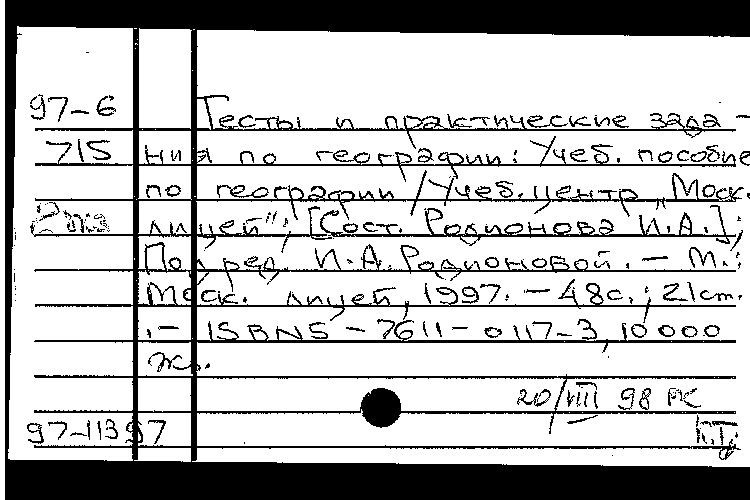 97-6 Тесты и практические зада-
715 ния по географии: Учеб. пособие
по географии / Учеб. центр „Моск.
2 экз лицей"; [Сост. Родионова И.А.];
Под ред. И.А. Родионовой. — М.:
Моск. лицей, 1997. — 48с.; 21 ст.
. — ISBN 5-7611-0117-3, 10 000
экз.
20/VIII 98 РС
97-11397